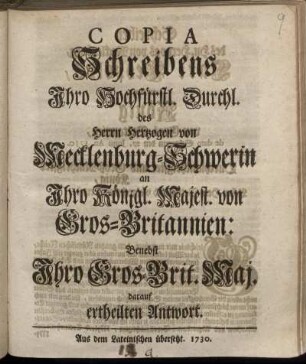 9
COPIA
Schreibens
Ihro Hochfürstl. Durchl.
des
Herrn Hertzogen von
Mecklenburg-Schwerin
an
Ihro Königl. Majest. von
Gros-Britannien:
Benebst
Ihro Gros-Brit. Maj.
darauf
ertheilten Antwort.
Aus dem Lateinischen übersetzt. 1730.